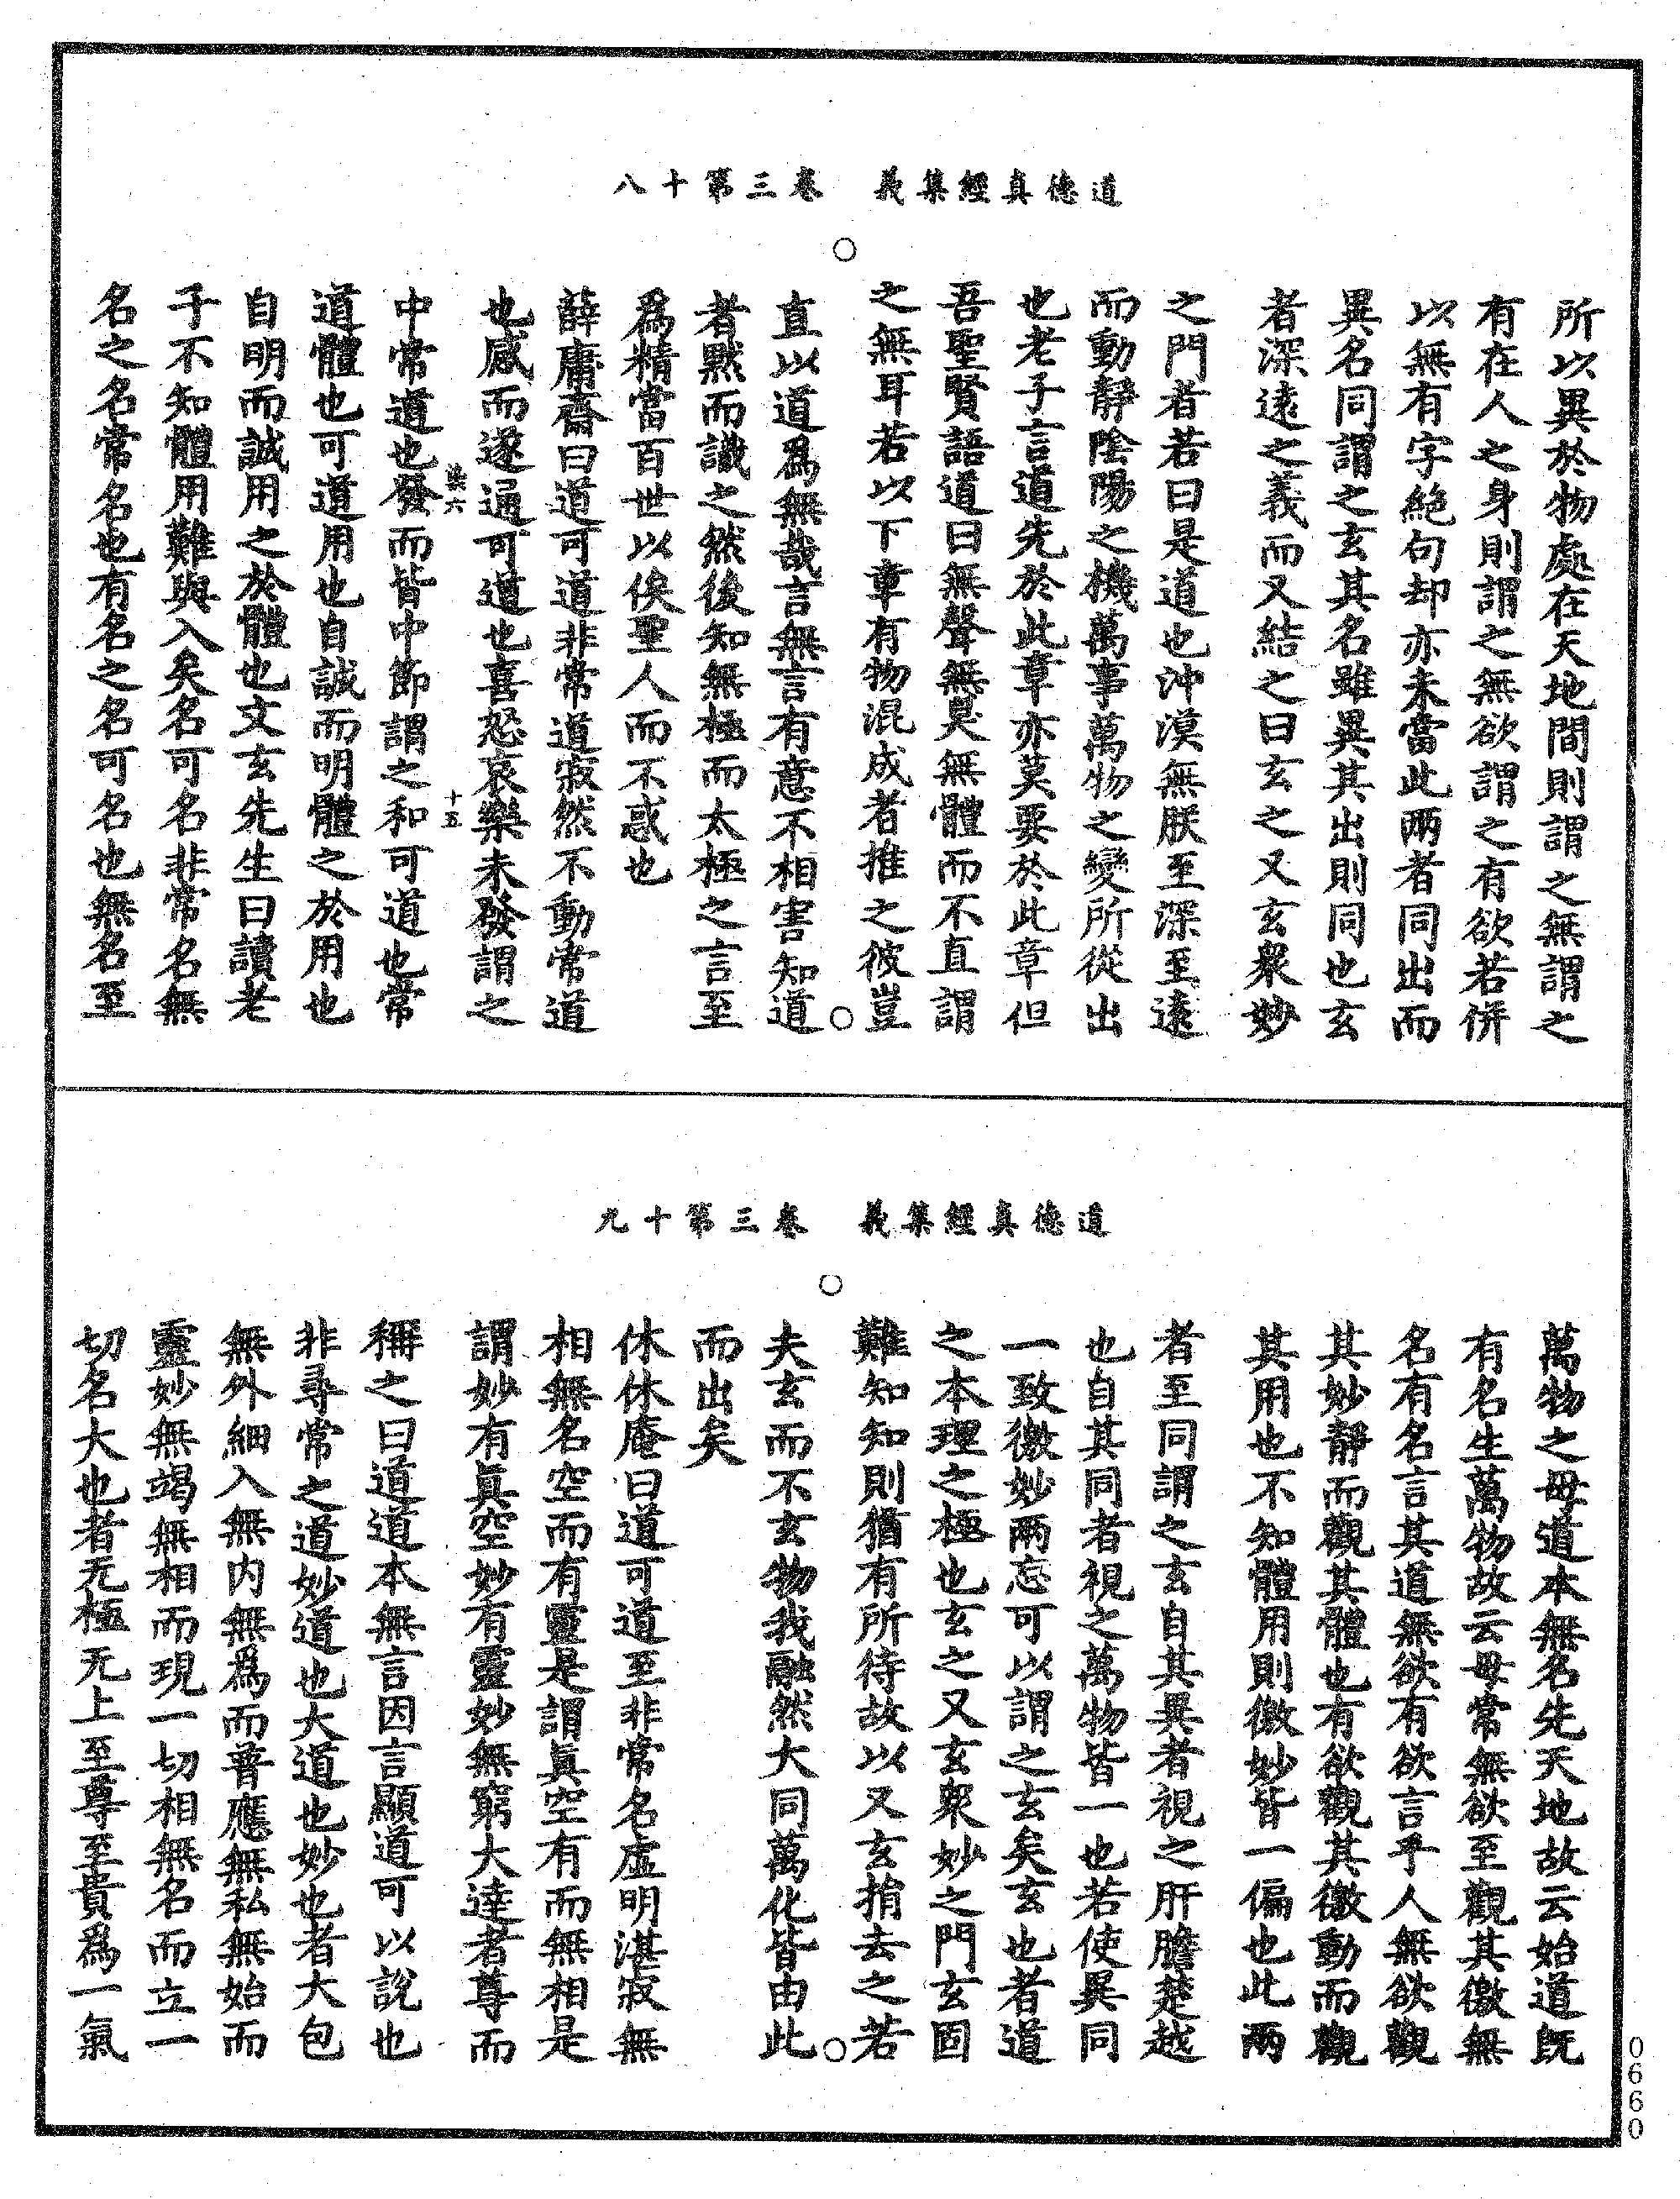 道德真經集義　卷三第十八
所以異於物處在天地間則謂之無謂之
有在人之身則謂之無欲謂之有欲若併
以無有字絶句却亦未當此兩者同出而
異名同謂之玄其名雖異其出則同也玄
者深遠之義而又結之曰玄之又玄衆妙
之門者若曰是道也沖漠無朕至深至遠
而動靜陰陽之機萬事萬物之變所從出
也老子言道先於此章亦莫要於此章但
吾聖賢語道曰無聲無臭無體而不直謂
之無耳若以下章有物混成者推之彼豈
直以道爲無哉言無言有意不相害知道
者黙而識之然後知無極而太極之言至
爲精當百世以俟聖人而不惑也
薛庸齋曰道可道非常道寂然不動常道
也感而遂通可道也喜怒哀樂未發謂之
中常道也發而皆中節謂之和可道也常
十五
道體也可道用也自誠而明體之於用也
自明而誠用之於體也文玄先生曰讀老
子不知體用難與入矣名可名非常名無
名之名常名也有名之名可名也無名至
道德真經集義　卷三第十九
萬物之母道本無名先天地故云始道旣
有名生萬物故云母常無欲至觀其徼無
名有名言其道無欲有欲言乎人無欲觀
其妙靜而觀其體也有欲觀其徼動而觀
其用也不知體用則徼妙皆一偏也此兩
者至同謂之玄自其異者視之肝膽楚越
也自其同者視之萬物皆一也若使異同
一致徼妙兩忘可以謂之玄矣玄也者道
之本理之極也玄之又玄衆妙之門玄固
難知知則猶有所待故以又玄捐去之若
夫玄而不玄物我融然大同萬化皆由此
而出矣
休休庵曰道可道至非常名虚明湛寂無
相無名空而有靈是謂眞空有而無相是
謂妙有眞空妙有靈妙無窮大達者尊而
稱之曰道道本無言因言顯道可以說也
非尋常之道妙道也大道也妙也者大包
無外細入無内無爲而普應無私無始而
靈妙無竭無相而現一切相無名而立一
切名大也者无極无上至尊至貴爲一氣
0660